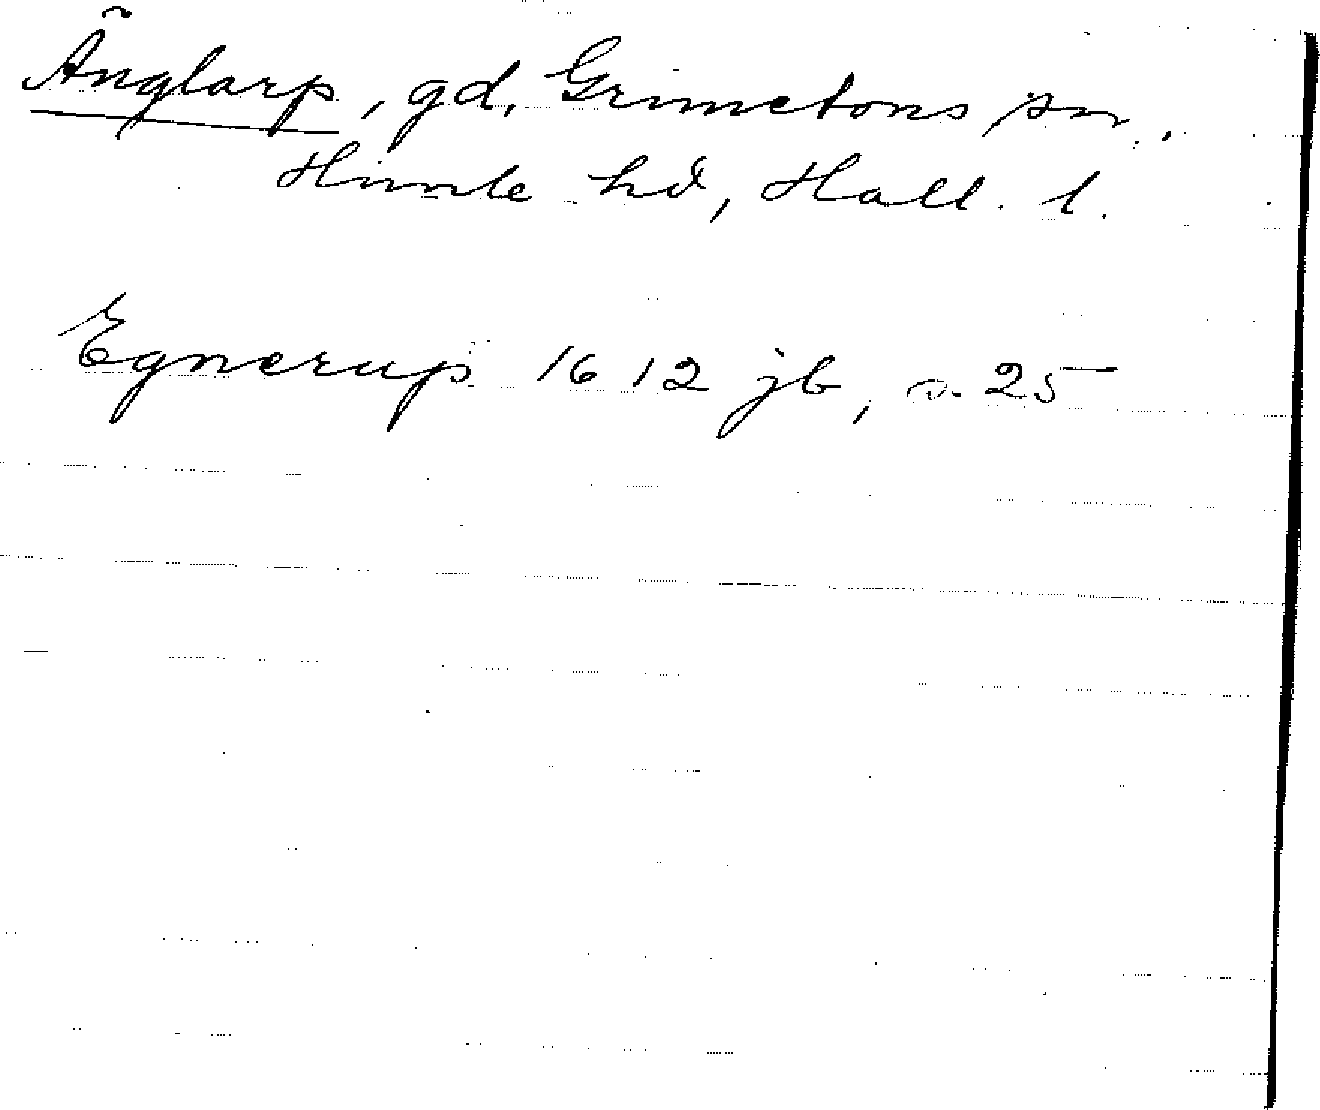 Änglarp, gd, Grimetons sn,
Himle hd, Hall. l.
Egnerup 1612 jb, s. 25